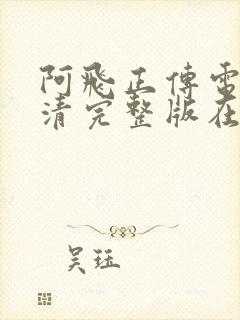 阿飛正傳電
清完整版在
吴珏